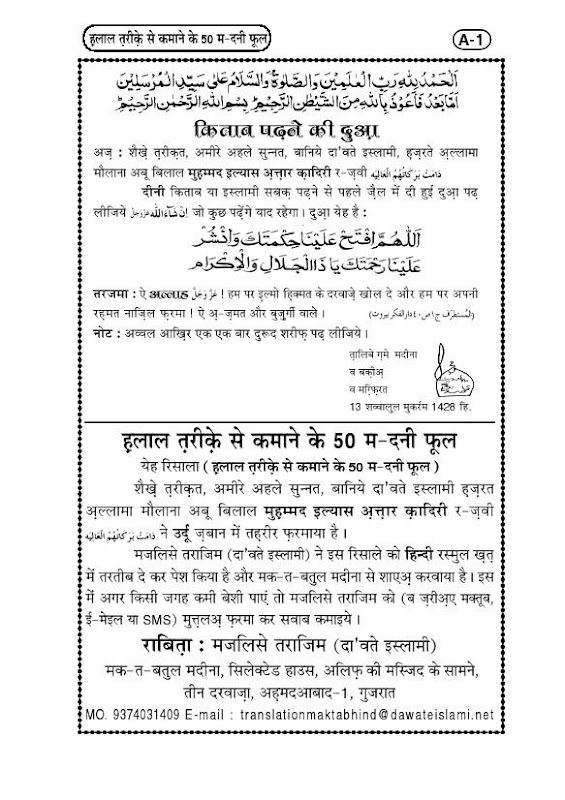 हलाल त़रीके़ से कमाने के 50 म-दनी फूल
A-1
اَلْحَمْدُ لِلّٰهِ رَبِّ الْعٰلَمِيْنَ وَالصَّلٰوةُ وَالسَّلَامُ عَلٰى سَيِّدِ الْمُرْسَلِيْنَ
اَمَّا بَعْدُ فَاَعُوْذُ بِاللّٰهِ مِنَ الشَّيْطٰنِ الرَّجِيْمِ بِسْمِ اللّٰهِ الرَّحْمٰنِ الرَّحِيْمِ
किताब पढ़ने की दुआ
अज़ : शैख़े त़रीक़त, अमीरे अहले सुन्नत, बानिये दा'वते इस्लामी, ह़ज़रते अ़ल्लामा
मौलाना अबू बिलाल मुह़म्मद इल्यास अ़त्त़ार क़ादिरी र-ज़वी دَامَتْ بَرَكَاتُهُمُ الْعَالِيَه
दीनी किताब या इस्लामी सबक़ पढ़ने से पहले ज़ैल में दी हुई दुआ पढ़
लीजिये اِنْ شَآءَ اللّٰه عَزَّوَجَلَّ जो कुछ पढ़ेंगे याद रहेगा । दुआ येह है :
اَللّٰهُمَّ افْتَحْ عَلَيْنَا حِكْمَتَكَ وَانْشُرْ
عَلَيْنَا رَحْمَتَكَ يَا ذَا الْجَلَالِ وَالْاِكْرَام
तरजमा : ऐ अल्लाह عَزَّوَجَلَّ ! हम पर इल्मो हिक्मत के दरवाज़े खोल दे और हम पर अपनी
रह़मत नाज़िल फ़रमा ! ऐ अ़-ज़मत और बुज़ुर्गी वाले । (اَلْمُسْتَطْرَف ج۱ ص۴۰ دارالفکر بیروت)
नोट : अव्वल आख़िर एक एक बार दुरूद शरीफ़ पढ़ लीजिये ।
त़ालिबे ग़मे मदीना
व बक़ीअ़
व मग़्फ़िरत
13 शव्वालुल मुकर्रम 1428 हि.
ह़लाल त़रीके़ से कमाने के 50 म-दनी फूल
येह रिसाला ( ह़लाल त़रीके़ से कमाने के 50 म-दनी फूल )
शैख़े त़रीक़त, अमीरे अहले सुन्नत, बानिये दा'वते इस्लामी ह़ज़रत
अ़ल्लामा मौलाना अबू बिलाल मुह़म्मद इल्यास अ़त्त़ार क़ादिरी र-ज़वी
دَامَتْ بَرَكَاتُهُمُ الْعَالِيَه ने उर्दू ज़बान में तह़रीर फ़रमाया है ।
मजलिसे तराजिम (दा'वते इस्लामी) ने इस रिसाले को हिन्दी रस्मुल ख़त़
में तरतीब दे कर पेश किया है और मक-त-बतुल मदीना से शाएअ़ करवाया है । इस
में अगर किसी जगह कमी बेशी पाएं तो मजलिसे तराजिम को (ब ज़रीअ़ए मक्तूब,
ई-मेइल या SMS) मुत़्त़लअ़ फ़रमा कर सवाब कमाइये ।
राबित़ा : मजलिसे तराजिम (दा'वते इस्लामी)
मक-त-बतुल मदीना, सिलेक्टेड हाउस, अलिफ़ की मस्जिद के सामने,
तीन दरवाज़ा, अह़मदआबाद-1, गुजरात
MO. 9374031409 E-mail : translationmaktabhind@dawateislami.net